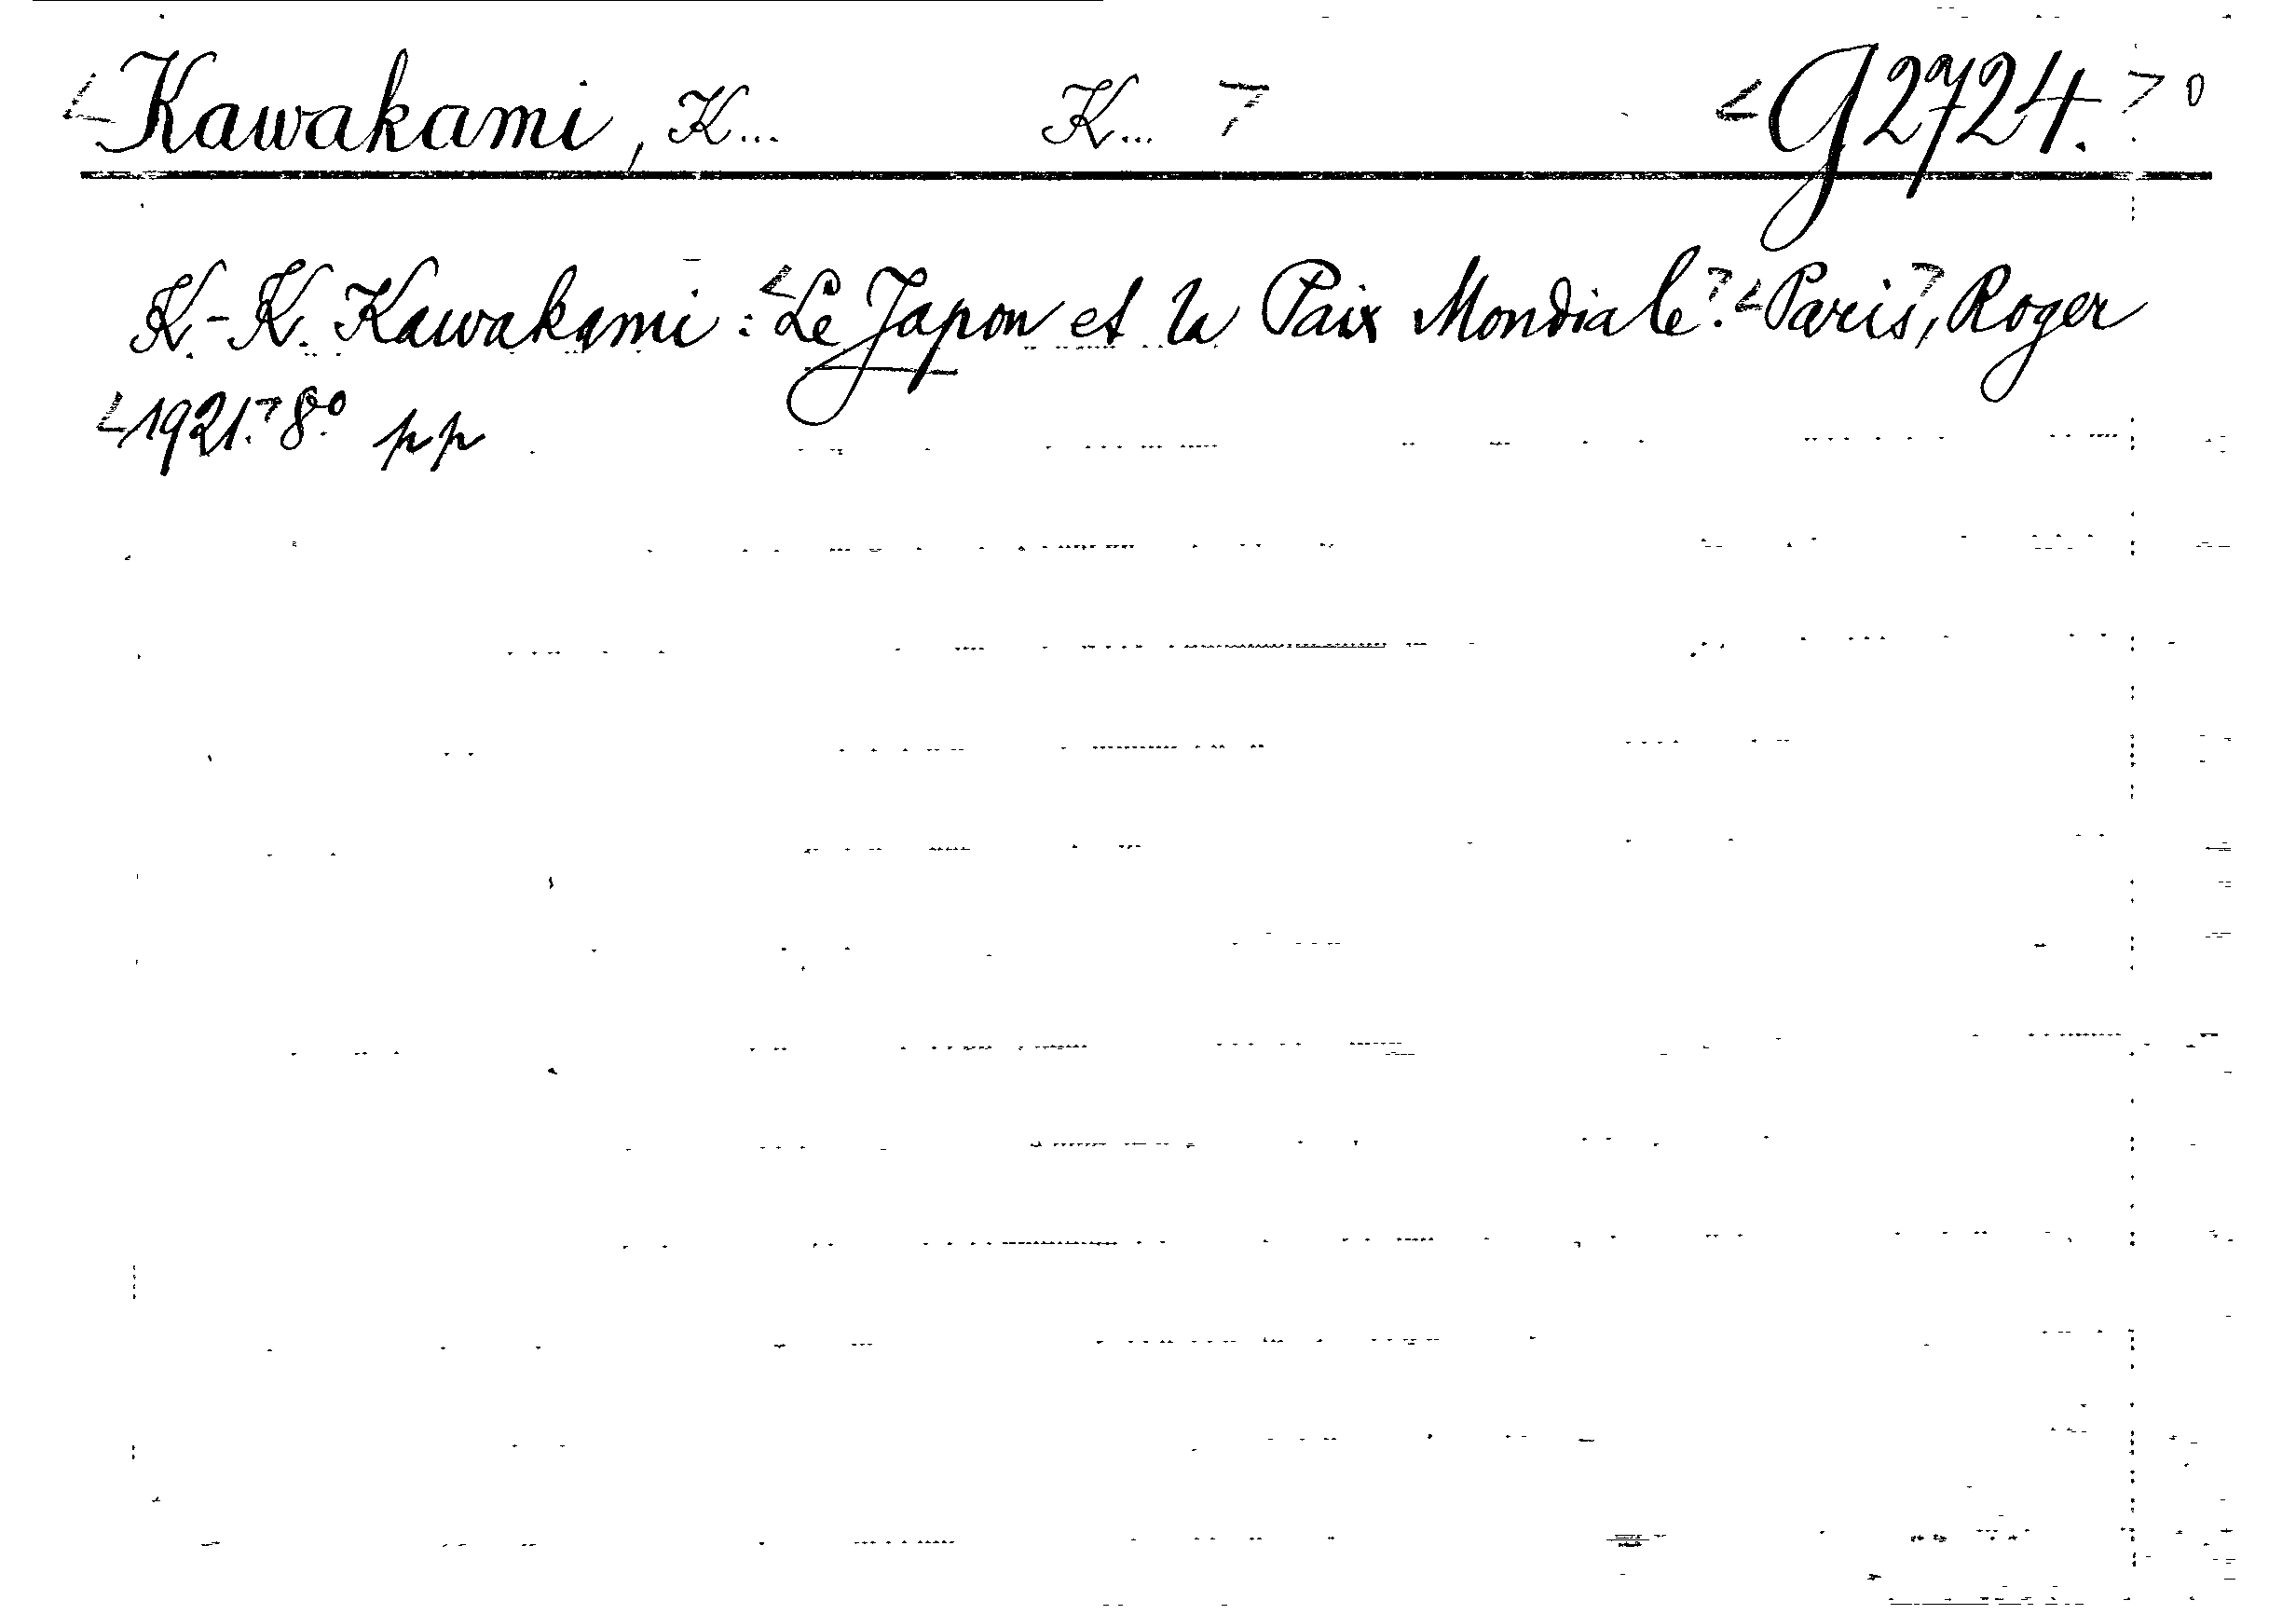 <Kawakami, K... K... > <G2724.> 0
K.-K. Kawakami: <Le Japon et la Paix Mondiale.> <Paris>, Roger
<1921.> 8.° pp